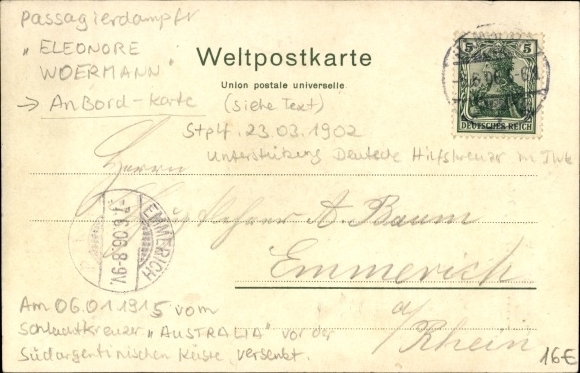 Passagierdampfr
"ELEONORE
WOERMANN"
→ AnBord-Karte (siehe Text)
Weltpostkarte
Union postale universelle
5 5
DEUTSCHES REICH
Stplf. 23.03.1902
Unterstützung Deutsche Hilfskreuzer im
Herrn
A. Baum
Emmerich
a/
Rhein
EMMERICH
-7.6.06.8-9V.
Am 06.01.1915 vom
Schlachtkreuzer "AUSTRALIA" vor der
Südargentinischen Küste versenkt.
16€